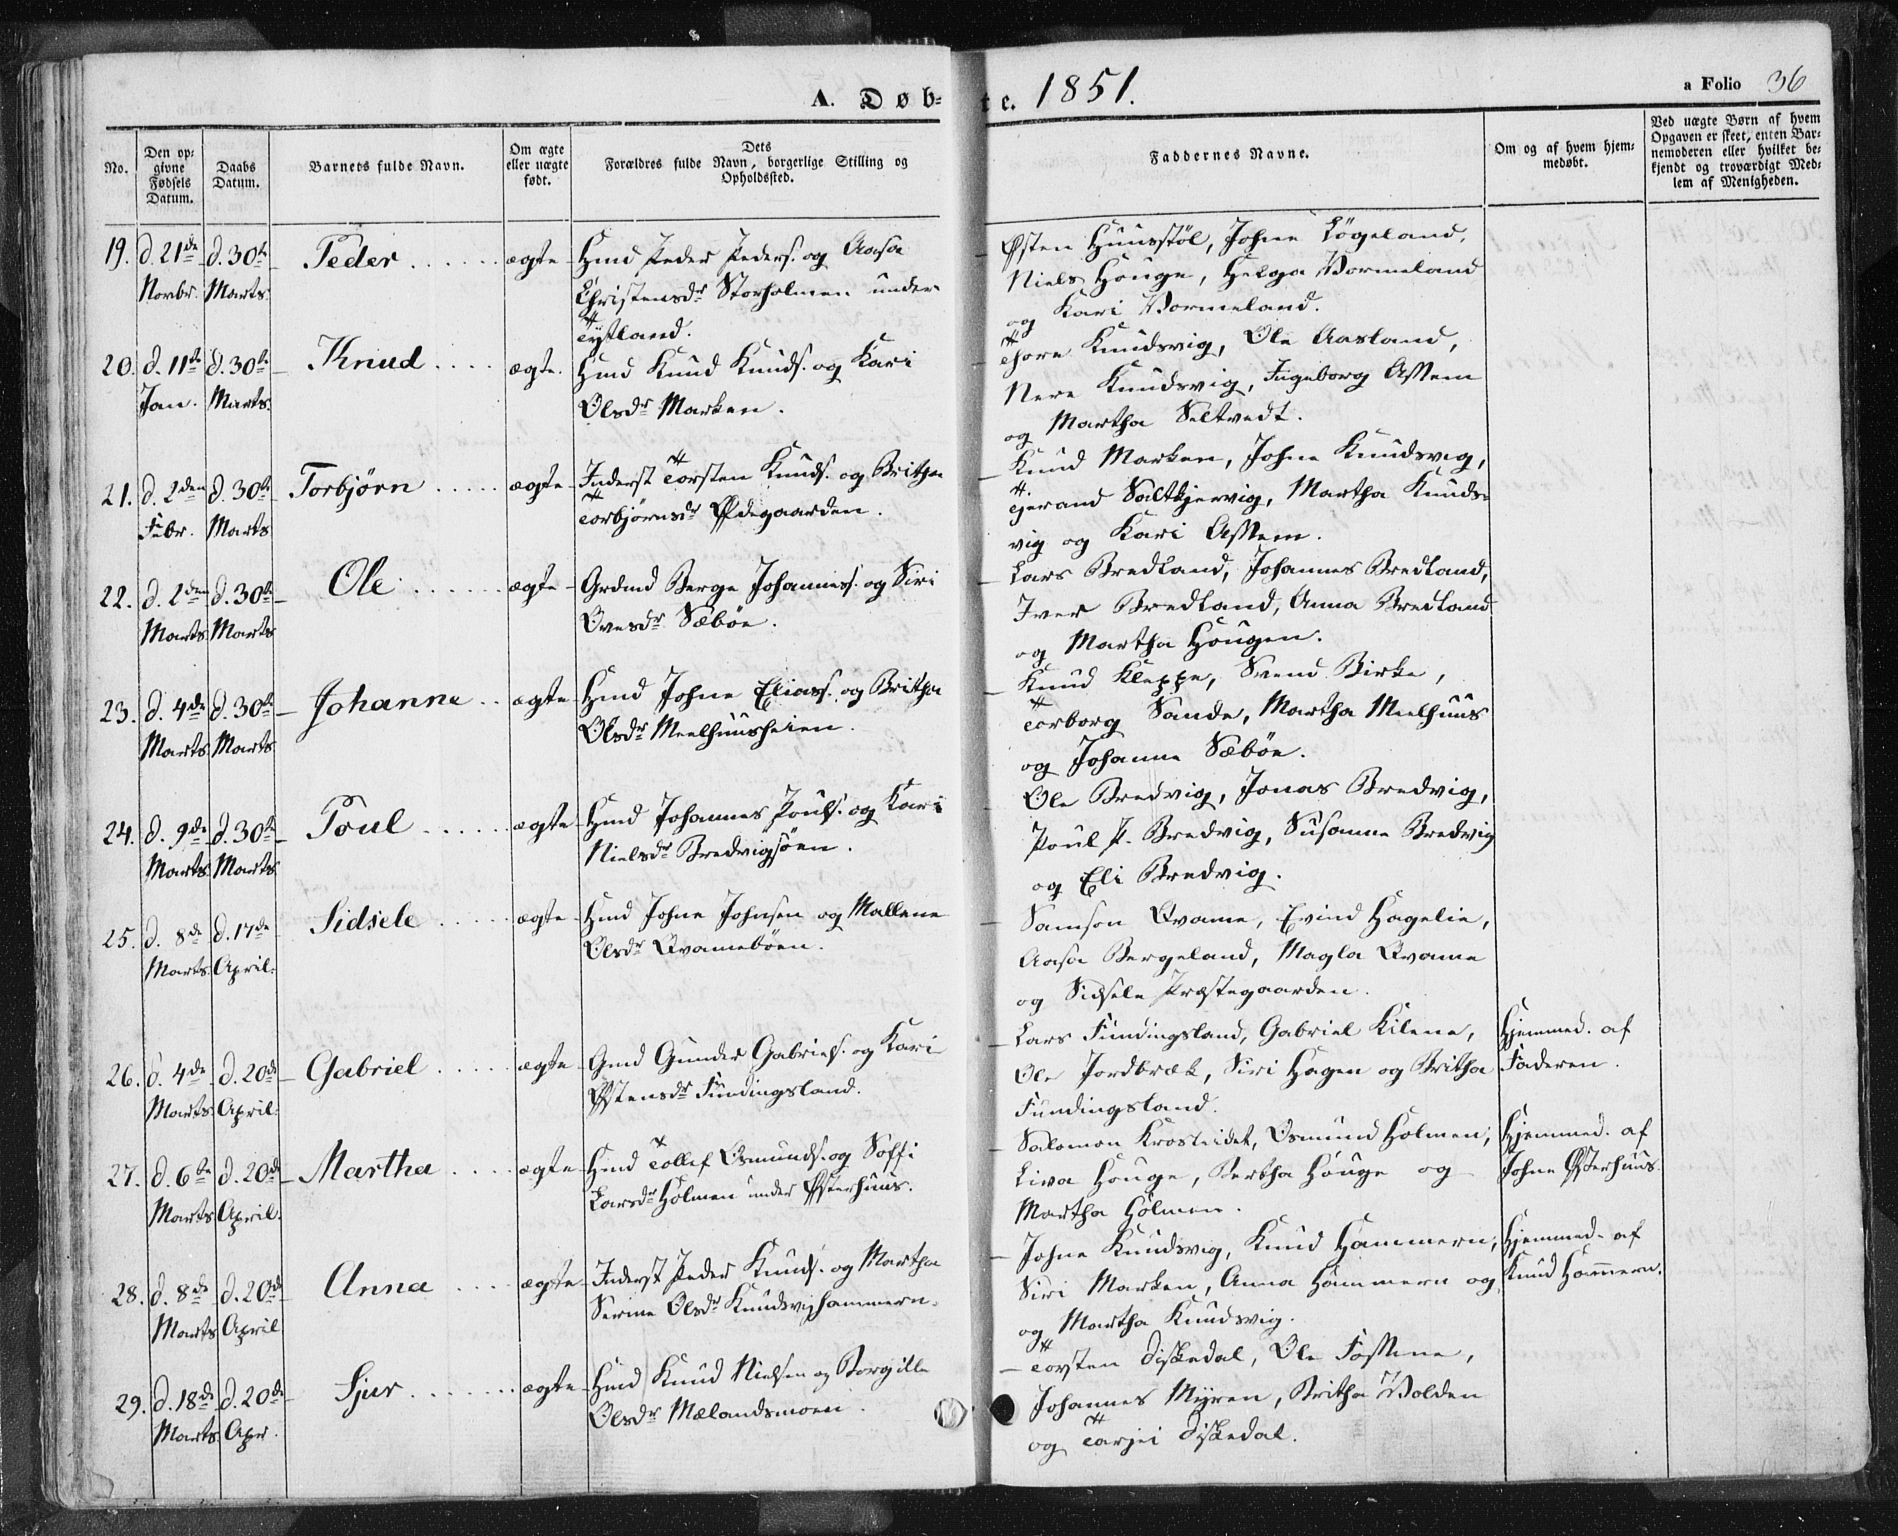 A. Døb-
te. 1851.
a Folio 36
No.
Den op-
givne
Fødsels
Datum.
Daabs
Datum.
Barnets fulde Navn.
Om ægte
eller uægte
født.
Dets
Forældres fulde Navn, borgerlige Stilling og
Opholdssted.
Faddernes Navne.
Om og af hvem hjem-
medøbt.
Ved uægte Børn af hvem
Opgaven er skeet, enten Bar-
nemoderen eller hvilket be-
kjendt og troværdigt Med-
lem af Menigheden.
19. d. 21de Novbr. d. 30te Marts. Peder ægte
Hmd Peder Peders. og Aasa
Christensdr Storholmen under
Tystland.
Østen Huusstøl, Johne Løgeland,
Niels Houge, Helga Wormeland
og Kari Wormeland.
20. d. 11te Jan. d. 30te Marts. Knud ægte.
Hmd Knud Knuds. og Kari
Olsdr Marken.
Thore Knudsvig, Ole Aasland,
Nere Knudsvig, Ingeborg Assem
og Martha Seltvedt.
21. d. 2den Febr. d. 30te Marts Torbjørn ægte
Inderst Torsten Knuds. og Britha
Torbjørnsdr Ødegaarden.
Knud Marken, Johne Knudsvig,
Tjerand Saltkjervig, Martha Knuds-
vig og Kari Assem.
22. d. 2den Marts d. 30te Marts Ole ægte
Grdmd Berge Johanness. og Siri
Ovesdr Sæbøe.
Lars Bredland, Johannes Bredland,
Iver Bredland, Anna Bredland
og Martha Hougen.
23. d. 4de Marts d. 30te Marts Johanne ægte
Hmd Johne Eliass. og Britha
Olsdr Meelhuusheien.
Knud Kleppe, Svend Birke,
Torborg Sande, Martha Meelhuus
og Johanne Sæbøe.
24. d. 9de Marts d. 30te Marts Poul ægte
Hmd Johannes Pouls. og Kari
Nielsdr Bredvigsøen.
Ole Bredvig, Jonas Bredvig,
Poul P. Bredvig, Susanne Bredvig
og Eli Bredvig.
25. d. 8de Marts d. 17de April. Sidsele ægte
Hmd Johne Johnsen og Mallene
Olsdr Qvamebøen.
Samson Qvame, Evind Hagelie,
Aasa Bergeland, Magla Qvame
og Sidsele Præstegaarden.
26. d. 4de Marts d. 20de April. Gabriel ægte
Gmd Gunder Gabriels. og Kari
Østensdr Fundingsland.
Lars Fundingsland, Gabriel Kilene,
Ole Jordbræk, Siri Hagen og Britha
Fundingsland.
Hjemmed. af
Faderen.
27. d. 6te Marts d. 20de April. Martha ægte
Hmd Tollef Osmunds. og Soffi
Larsdr Holmen under Østerhuus.
Salomon Krosleidet, Osmund Holmen,
Liva Houge, Bertha Houge og
Martha Holmen.
Hjemmed. af
Johne Østerhuus.
28. d. 8de Marts d. 20de April Anna ægte
Inderst Peder Knuds. og Martha
Serine Olsdr Knudsvighammern.
Johne Knudsvig, Knud Hammern,
Siri Marken, Anna Hammern og
og Martha Knudsvig.
Hjemmed. af
Knud Hammern.
29. d. 18de Marts d. 20de Apr. Sjur ægte
Hmd Knud Nielsen og Borgille
Olsdr Mælandsmoen.
Torsten Diskedal, Ole Fossene,
Johannes Myren, Britha Wolden
og Tarjei Diskedal.